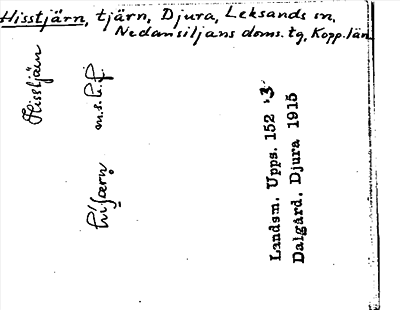 Hisstjärn, tjärn, Djura, Leksands sn,
Nedansiljans doms. tg, Kopp. län
Hisstjärn
m.s.k.f.
Landsm. Upps. 152 :3
Dalgård. Djura 1915